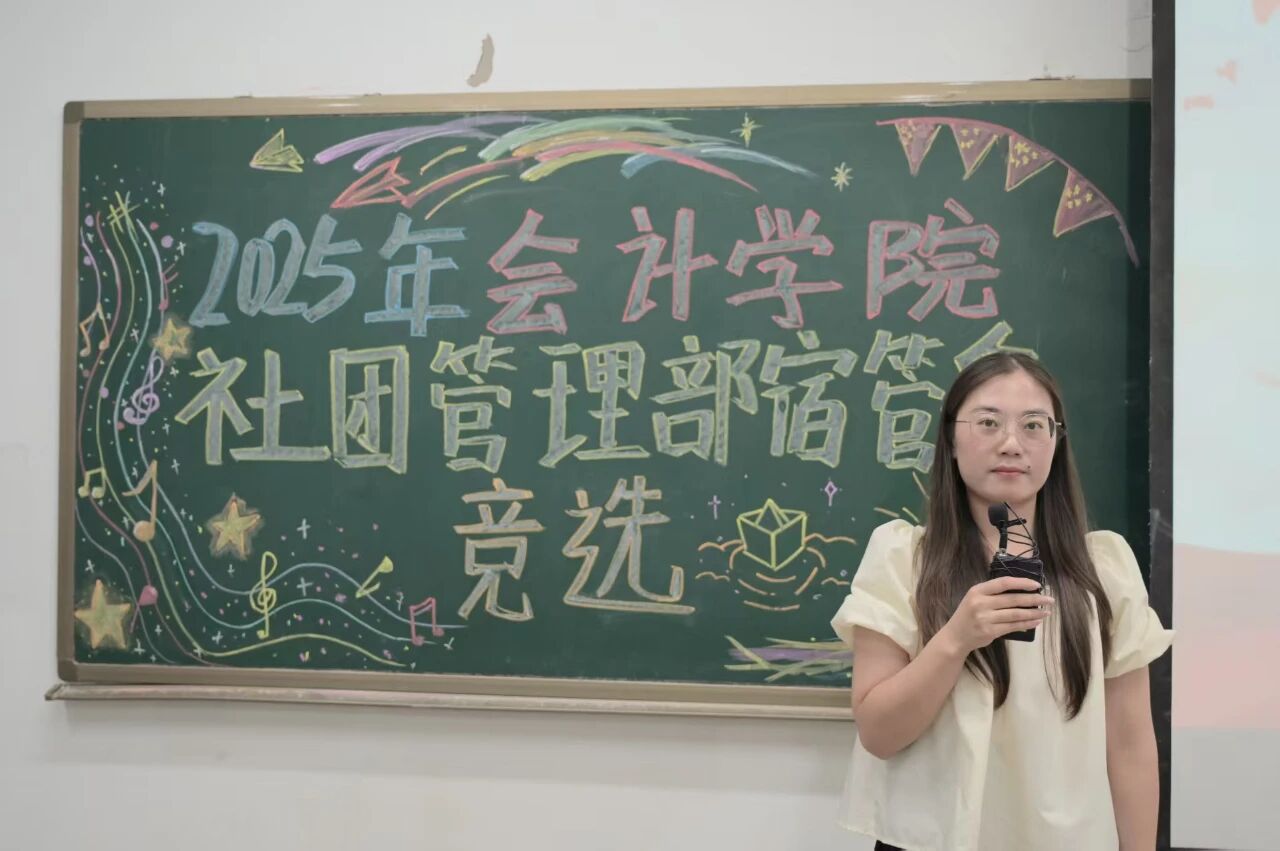 2025年会计学院
社团管理部宿管
竞选